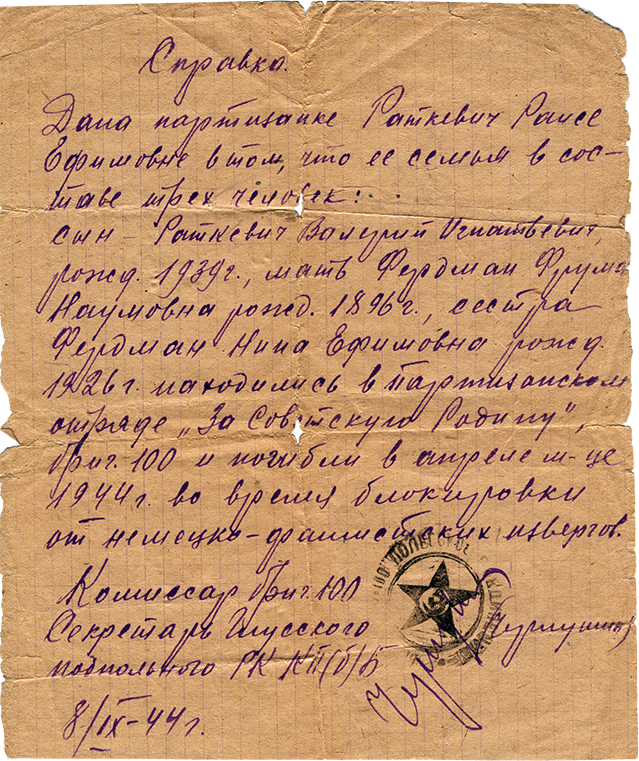 Справка.
Дана партизанке Раткевич Раисе
Ефимовне в том, что ее семья в сос-
таве трех человек:
сын Раткевич Валерий Игнатьевич,
рожд. 1939г., мать Фердман Фрума
Наумовна рожд. 1896г., сестра
Фердман Нина Ефимовна рожд.
1926г. находились в партизанском
отряде „За Советскую Родину",
бриг. 100 и погибли в апреле м-це
1944г. во время блокировки
от немецко-фашистских извергов.
Комиссар бриг. 100
Секретарь Глусского
подпольного РК КП(б)Б
8/IX-44г.